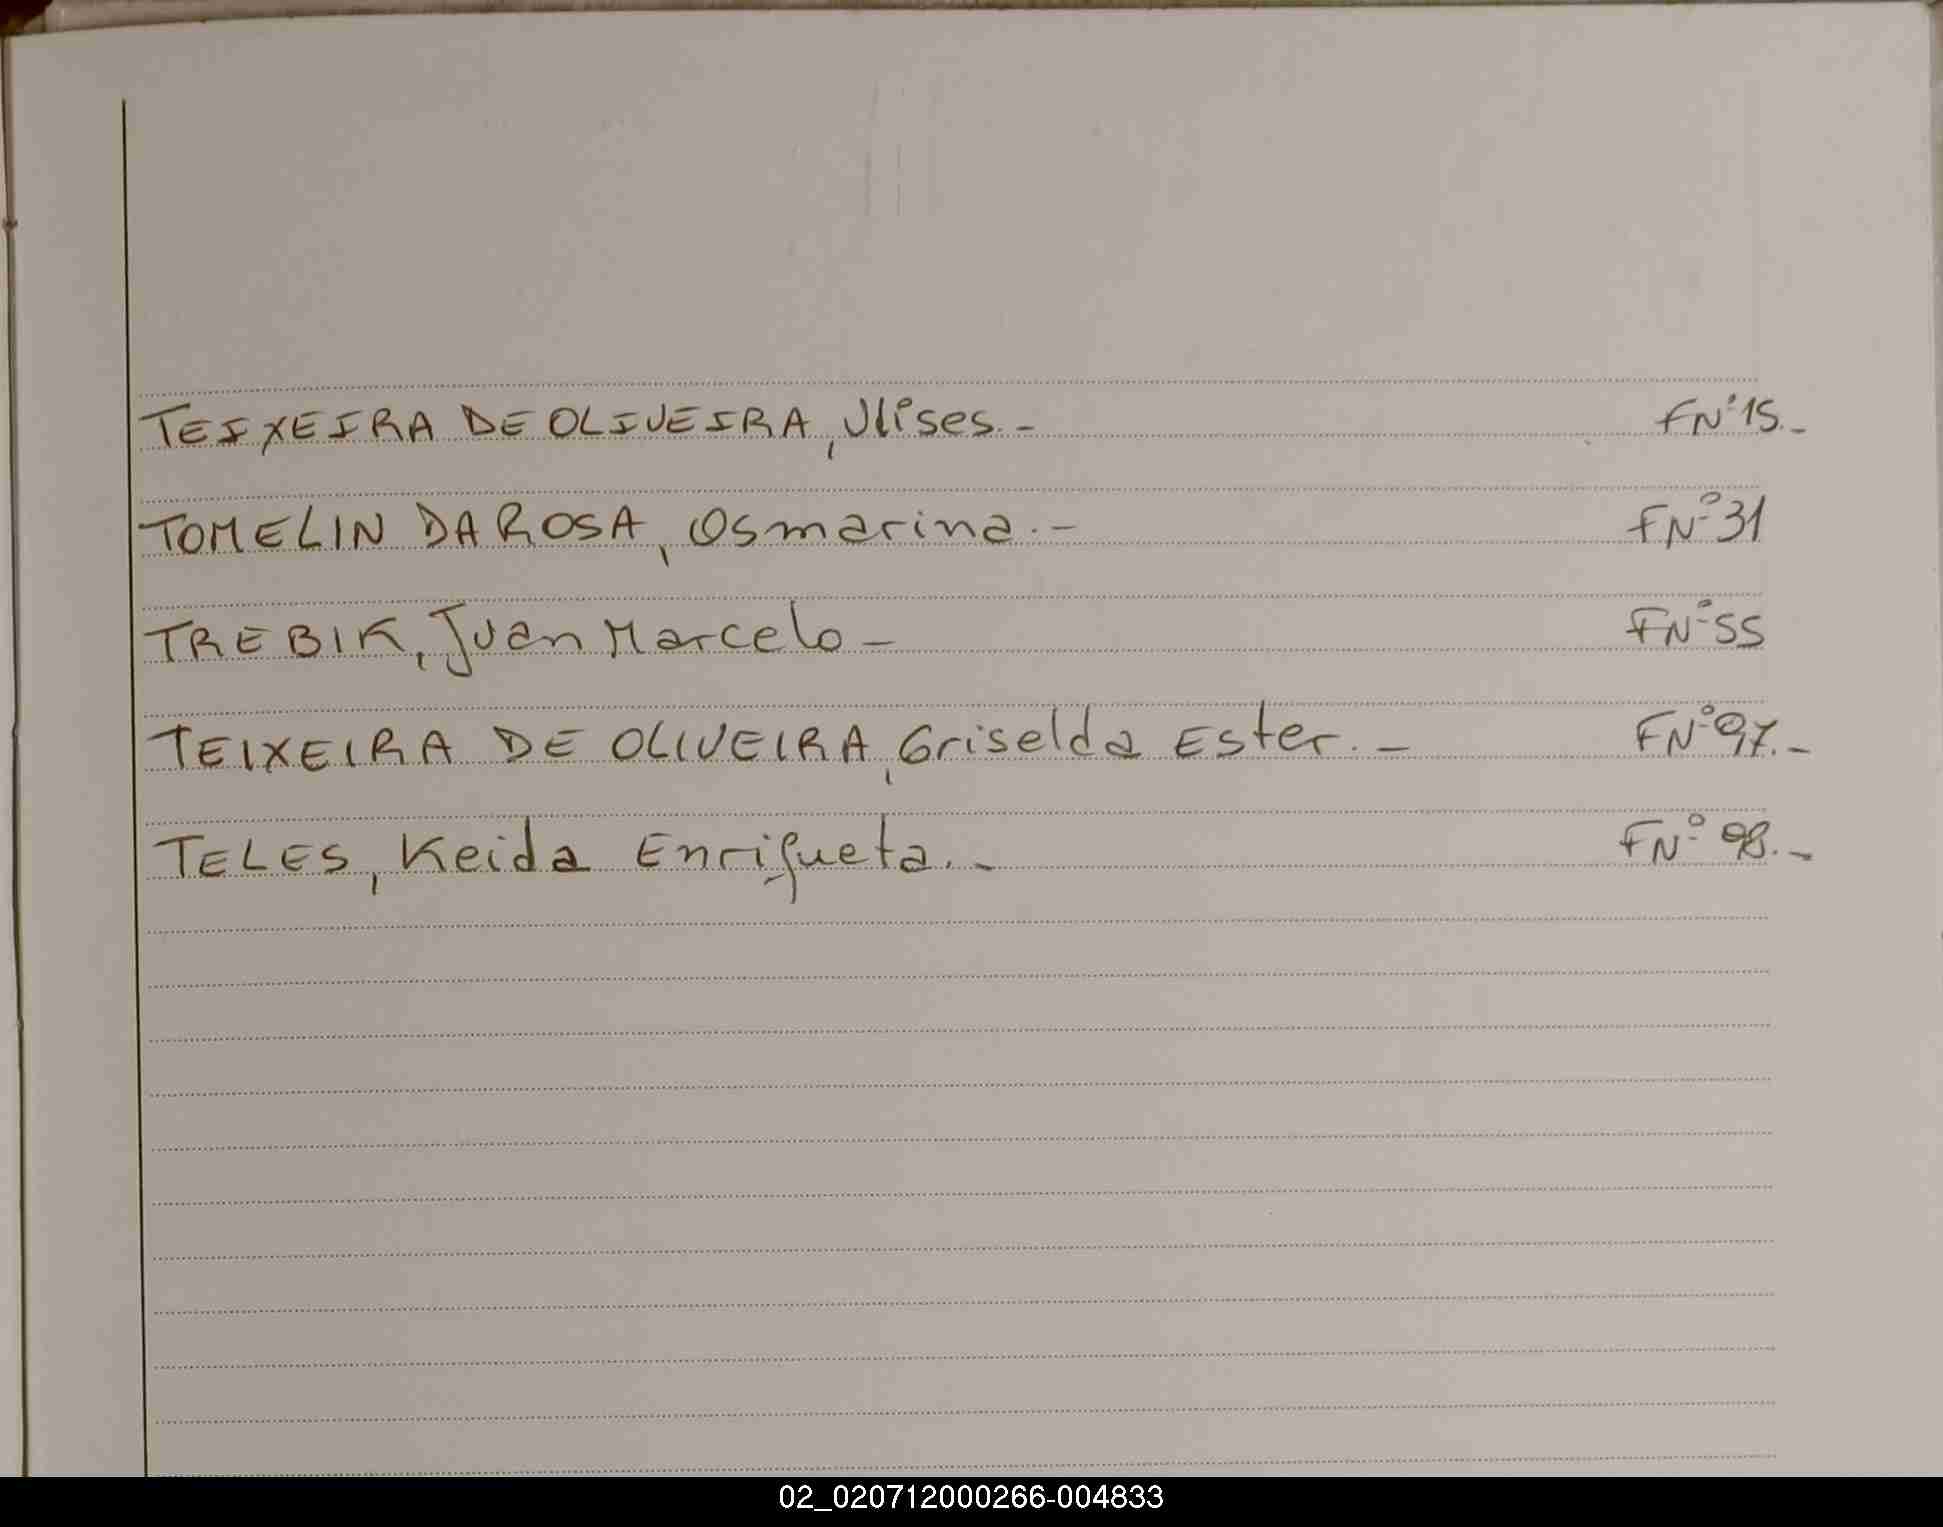 TEIXEIRA DE OLIVEIRA, Ulises.- FNº15.-
TOMELIN DA ROSA, Osmarina.- FNº31
TREBIK, Juan Marcelo- FNº55
TEIXEIRA DE OLIVEIRA, Griselda Ester.- FNº97.-
TELES, Keida Enriqueta.- FNº98.-
02_020712000266-004833